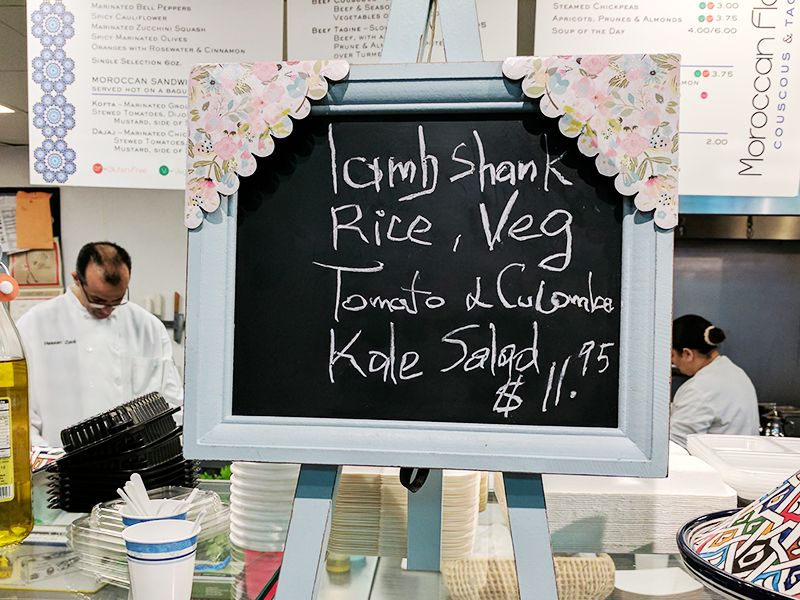 Marinated Bell Peppers
Spicy Cauliflower
Marinated Zucchini Squash
Spicy Marinated Olives
Oranges with Rosewater & Cinnamon
Single Selection 6oz.
Moroccan Sandwi
served hot on a bagu
Kofta – Marinated Gro
Stewed Tomatoes, Dijo
Mustard, side of
Dajaj – Marinated Chic
Stewed Tomatoe
Mustard, side of
Gluten Free
Beef & Seaso
Vegetables o
Beef Tagine – Slow
Beef, with a
Prune & Alm
over Turme
Steamed Chickpeas 3.00
Apricots, Prunes & Almonds 3.75
Soup of the Day 4.00/6.00
3.75
2.00
Moroccan Fl
couscous & ta
lamb shank
Rice, Veg
Tomato & Cucombe
Kale Salad
$ 11.95